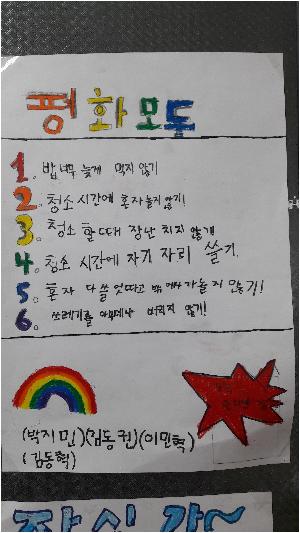 평화모둠
1. 밥 너무 늦게 먹지 않기
2. 청소 시간에 혼자 놀지 않기!
3. 청소 할 때 장난 치지 않기
4. 청소 시간에 자기 자리 쓸기.
5. 혼자 다 쓸었다고 밖에 나가 놀지 않기!
6. 쓰레기를 아무데나 버리지 않기!
(박지민)(김동권)(이민혁)
(김동혁)